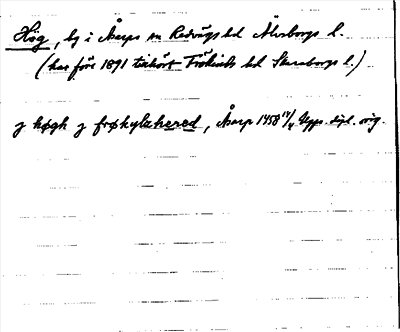 Hög, by i Åsarps sn Redvägs hd Älvsborgs l.
(har före 1891 tillhört Frökinds hd Skaraborgs l.)
j høgh j frøkylzhered, Åsarp 1458 17/4 Upps. dipl. orig.